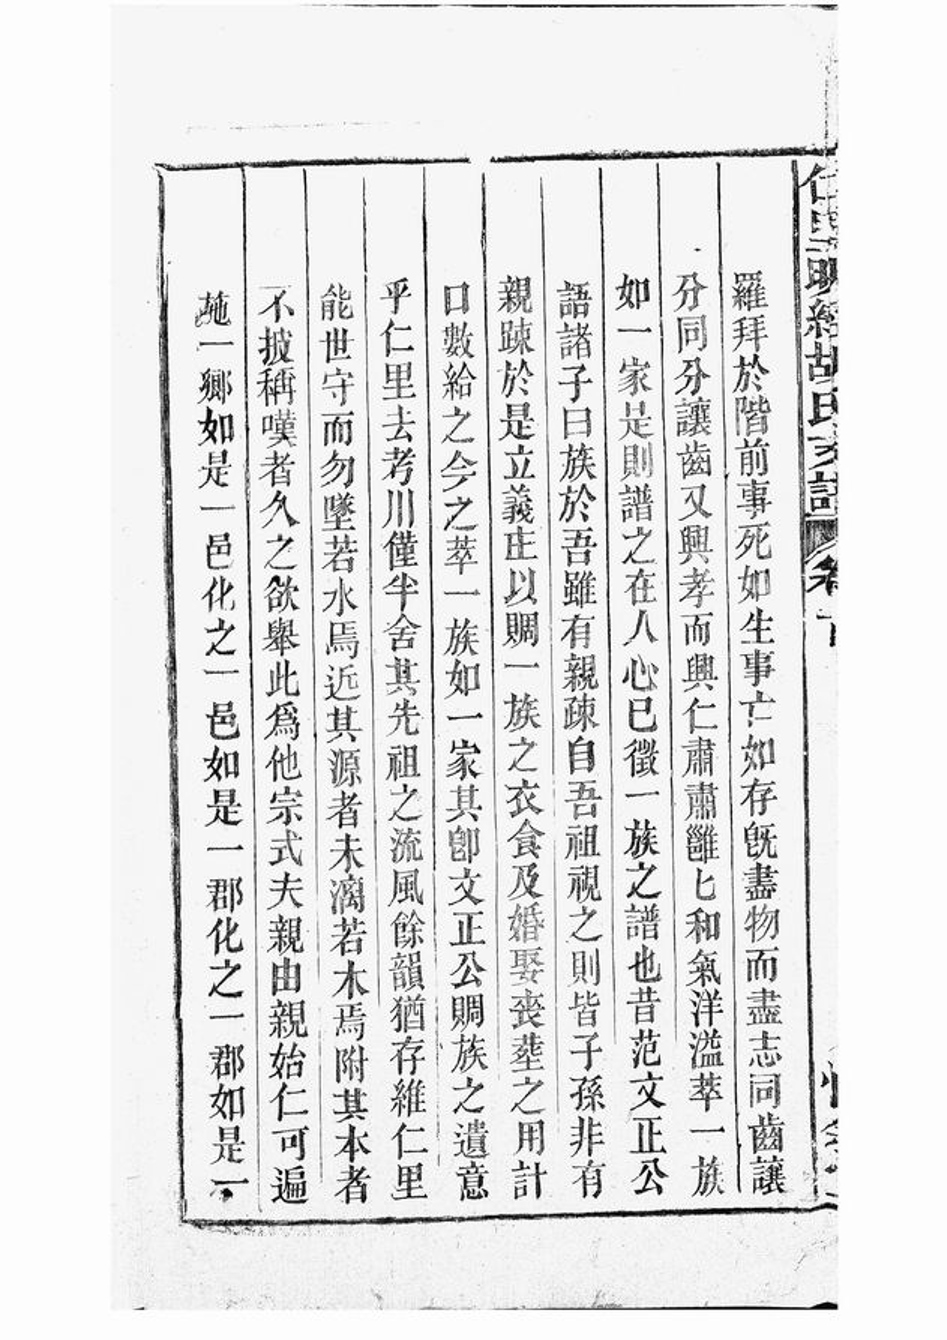 仁里明經胡氏支譜
卷下
羅拜於階前事死如生事亡如存既盡物而盡志同齒讓
分同分讓齒又興孝而興仁肅肅雝匕和氣洋溢萃一族
如一家是則譜之在人心已徵一族之譜也昔范文正公
語諸子曰族於吾雖有親疎自吾祖視之則皆子孫非有
親踈於是立義庄以賙一族之衣食及婚娶喪塟之用計
口數給之今之萃一族如一家其卽文正公賙族之遺意
乎仁里去考川僅半舍其先祖之流風餘韻猶存維仁里
能世守而勿墜若水焉近其源者未漓若木焉附其本者
不披稱嘆者久之欲舉此爲他宗式夫親由親始仁可遍
施一鄉如是一邑化之一邑如是一郡化之一郡如是一